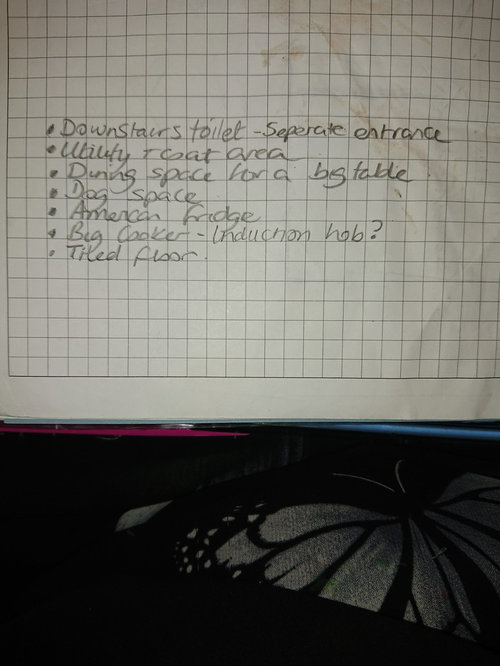 • Downstairs toilet - Seperate entrance
• Utility + coat area
• Dining space for a big table
• Dog space
• American fridge
• Big Cooker - Induction hob?
• Tiled floor.